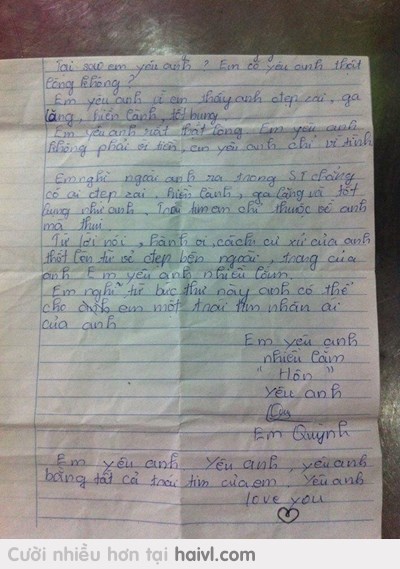 Tại sao em yêu anh? Em có yêu anh thật
lòng không?
Em yêu anh vì em thấy anh đẹp zai, ga
lăng, hiền lành, tốt bụng.
Em yêu anh rất thật lòng. Em yêu anh
không phải vì tiền, em yêu anh chỉ vì tình
Em nghĩ ngoài anh ra trong S.T chẳng
có ai đẹp zai, hiền lành, ga lăng và tốt
bụng như anh. Trái tim em chỉ thuộc về anh
mà thui
Từ lời nói, hành vi, cách cư xử của anh
thốt lên từ vẻ đẹp bên ngoài, trong của
anh. Em yêu anh nhiều lắm.
Em nghĩ từ bức thư này anh có thể
cho em một trái tim nhân ái
của anh
Em yêu anh
nhiều lắm
" Hôn "
yêu anh
Em Quỳnh
Em yêu anh Yêu anh, yêu anh
bằng tất cả trái tim của em. Yêu anh
love you
Cười nhiều hơn tại haivl.com